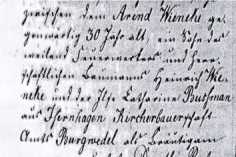 zwischen dem Arend Wieneke ge-
genwärtig 30 Jahr alt ein Sohn des
weiland Feuerwerkers und Herr-
schaftlichen Baumanns Heinrich Wie-
neke und der Ilse Catharine Buchman
aus Isernhagen Kircherbauerschaft
Amts Burgwedel als Bräutigam